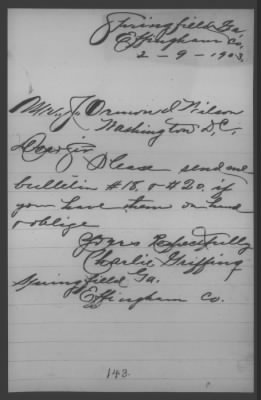 Springfield Ga,
Effingham Co,
2 - 9 - 1903.
Mr. J. Ormond Wilson
Washington D.C,
Dear Sir Please send me
bulletin #18, & #20. if
you have them on hand
& oblige
Yours Respectfully
Charlie Griffing
Springfield Ga.
Effingham Co.
143.